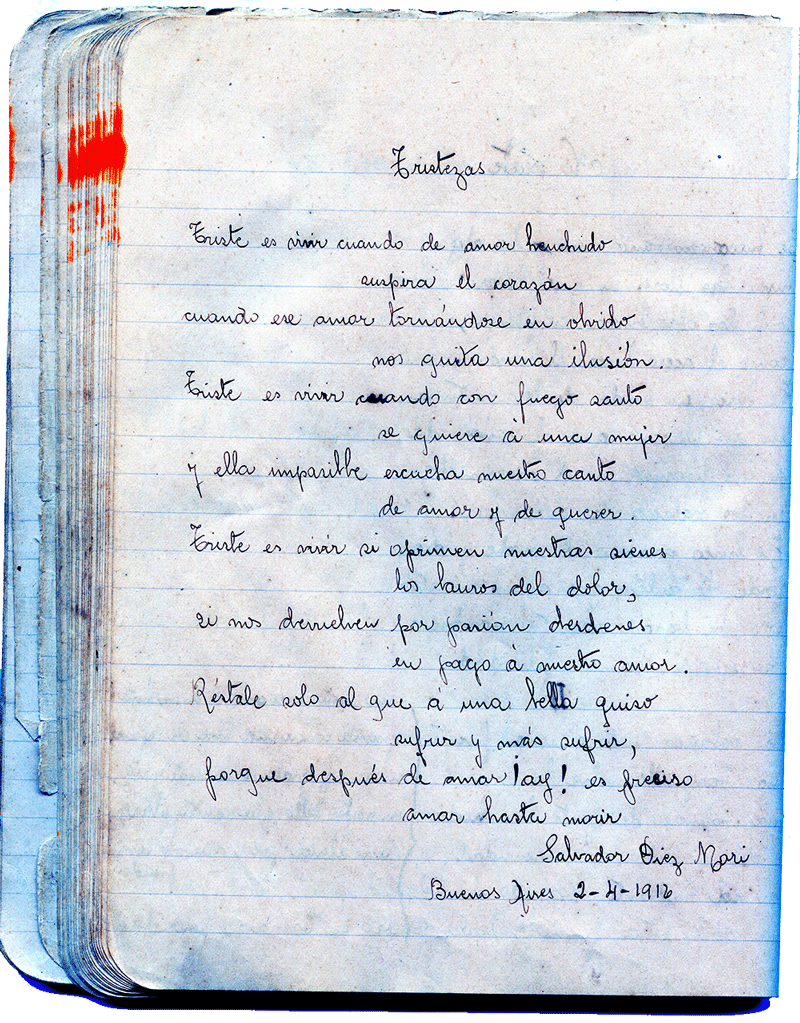 Tristezas
Triste es vivir cuando de amor henchido
suspira el corazón
cuando ese amor tornándose en olvido
nos quita una ilusión.
Triste es vivir cuando con fuego santo
se quiere á una mujer
y ella impasible escucha nuestro canto
de amor y de querer.
Triste es vivir si oprimen nuestras sienes
los lauros del dolor,
si nos devuelven por pasión desdenes
en pago á nuestro amor.
Réstale solo al que á una bella quiso
sufrir y más sufrir,
porque después de amar ¡ay! es preciso
amar hasta morir
Salvador Diez Mori
Buenos Aires 2-4-1916